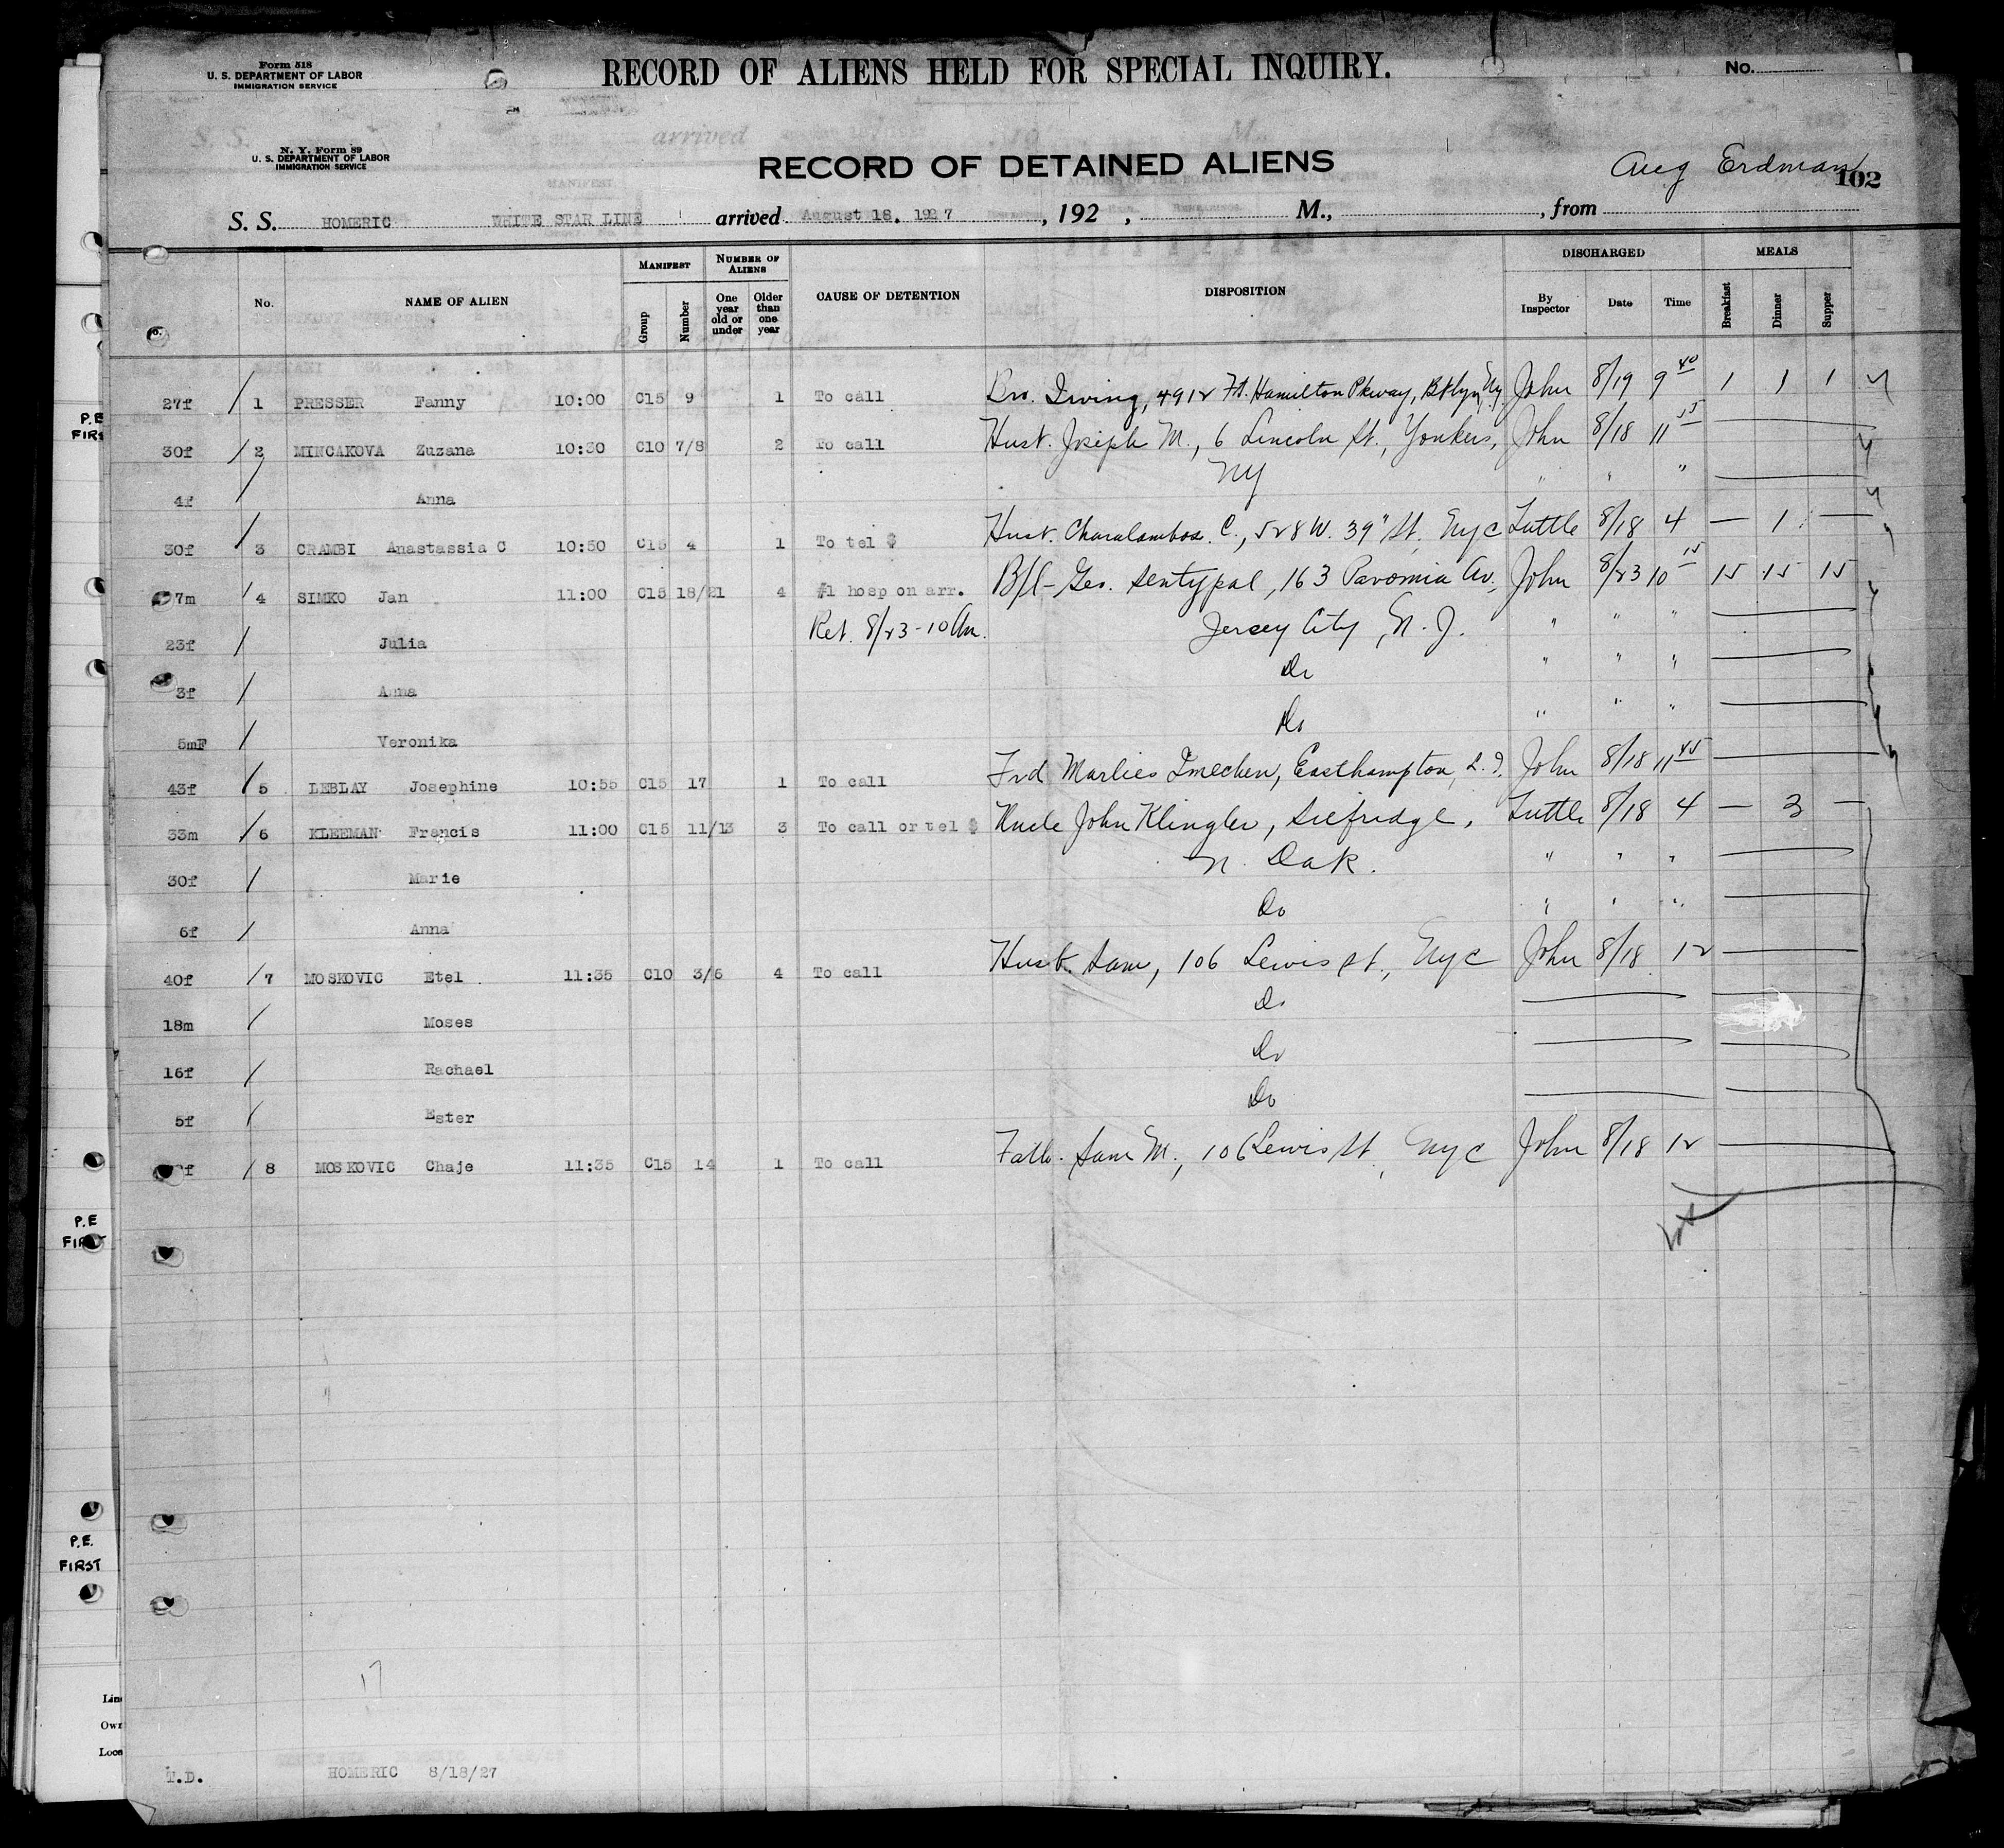 Form 518
U. S. DEPARTMENT OF LABOR
IMMIGRATION SERVICE
RECORD OF ALIENS HELD FOR SPECIAL INQUIRY.
No.
arrived
N. Y. Form 89
U. S. DEPARTMENT OF LABOR
IMMIGRATION SERVICE
RECORD OF DETAINED ALIENS
Aug Erdman
102
S. S. HOMERIC WHITE STAR LINE arrived August 18. 1927, 192 , M., , from
No. NAME OF ALIEN MANIFEST Group Number NUMBER OF ALIENS One year old or under Older than one year CAUSE OF DETENTION DISPOSITION DISCHARGED By Inspector Date Time MEALS Breakfast Dinner Supper
27f / 1 PRESSER Fanny 10:00 C15 9 1 To call Bro. Irving, 4912 Ft. Hamilton Pkway, Bklyn, Ny John 8/19 9 40 1 1 1
30f / 2 MINCAKOVA Zuzana 10:30 C10 7/8 2 To call Husb. Joseph M., 6 Lincoln St., Yonkers, John 8/18 11 55
4f / Anna NY " " "
30f / 3 CRAMBI Anastassia C 10:50 C15 4 1 To tel $ Husb. Charalambos C., 528 W. 39" St. Nyc Tuttle 8/18 4 — 1 —
7m / 4 SIMKO Jan 11:00 C15 18/21 4 #1 hosp on arr. B/l - Geo. Sentypal, 163 Pavonia Av. John 8/23 10 15 15 15 15
23f / Julia Ret. 8/23 - 10 Am. Jersey City, N. J. " "
3f / Anna Do " " "
5mF / Veronika Do " " "
43f / 5 LEBLAY Josephine 10:55 C15 17 1 To call Frd Marlies Easthampton, L. I. John 8/18 11 45
33m / 6 KLEEMAN Francis 11:00 C15 11/13 3 To call or tel $ Uncle John Klingler, Selfridge, Tuttle 8/18 4 — 3 —
30f / Marie N. Dak. " " "
6f / Anna Do " " "
40f / 7 MOSKOVIC Etel 11:35 C10 3/6 4 To call Husb. Sam, 106 Lewis St., Nyc John 8/18 12
18m / Moses Do
16f / Rachael Do
5f / Ester Do
f / 8 MOSKOVIC Chaje 11:35 C15 14 1 To call Fath. Sam M., 106 Lewis St, Nyc John 8/18 12
P.E
FIRST
P.E.
FIRST
17
T.D. HOMERIC 8/18/27